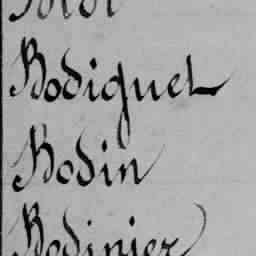 Bodiguel
Bodin
Bodinier